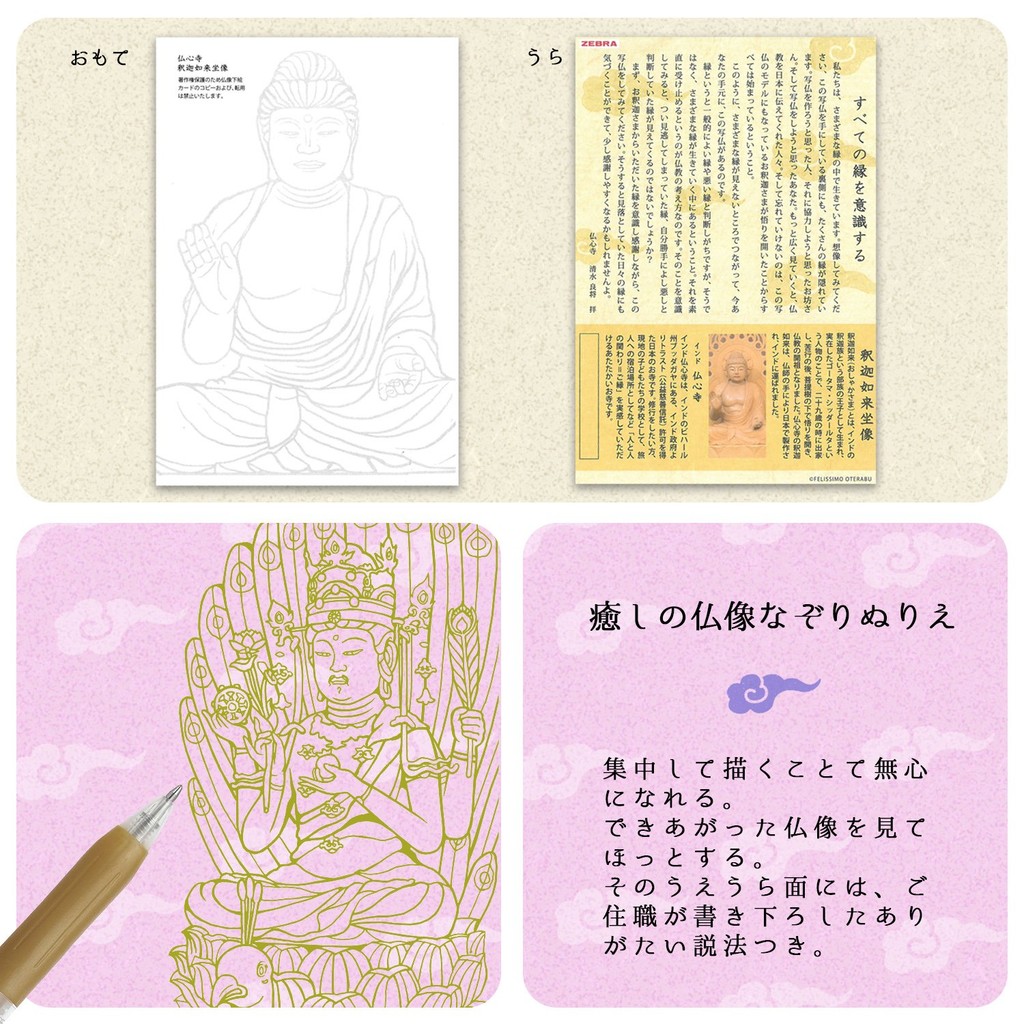 おもて
仏心寺
釈迦如来坐像
著作権保護のため仏像下絵
カードのコピーおよび、転用
は禁止いたします。
うら
ZEBRA
すべての縁を意識する
私たちは、さまざまな縁の中で生きています。想像してみてくだ
さい、この写仏を手にしている裏側にも、たくさんの縁が隠れてい
ます。写仏を作ろうと思った人、それに協力しようと思ったお坊さ
ん。そして写仏をしようと思ったあなた。もっと広く見ていくと、仏
教を日本に伝えてくれた人々。そして忘れていけないのは、この写
仏のモデルにもなっているお釈迦さまが悟りを開いたことからす
べては始まっているということ。
このように、さまざまな縁が見えないところでつながって、今あ
なたの手元に、この写仏があるのです。
縁というと一般的によい縁や悪い縁と判断しがちですが、そうで
はなく、さまざまな縁が生きていく中にあるということ。それを素
直に受け止めるというのが仏教の考え方なのです。そのことを意識
してみると、つい見逃してしまっていた縁、自分勝手によし悪しと
判断していた縁が見えてくるのではないでしょうか？
まず、お釈迦さまからいただいた縁を意識し感謝しながら、この
写仏をしてみてください。そうすると見落としていた日々の縁にも
気づくことができて、少し感謝しやすくなるかもしれませんよ。
仏心寺 清水良将 拝
釈迦如来坐像
釈迦如来（おしゃかさま）とは、インドの
釈迦族という部族の王子として生まれ、
実在したゴータマ・シッダールタとい
う人物のことで、二十九歳の時に出家
し、苦行の後、菩提樹の下で悟りを開き、
仏教の開祖となりました。仏心寺の釈迦
如来は、仏師の手により日本で製作さ
れ、インドに運ばれました。
インド 仏心寺
インド仏心寺は、インドのビハール
州ブッダガヤにある、インド政府よ
りトラスト（公益慈善信託）許可を得
た日本のお寺です。修行をしたい方、
現地の子どもたちの学校として、旅
人への宿泊場所としてなど「人と人
の関わり＝ご縁」を実感していただ
けるあたたかいお寺です。
©FELISSIMO OTERABU
癒しの仏像なぞりぬりえ
集中して描くことで無心
になれる。
できあがった仏像を見て
ほっとする。
そのうえうら面には、ご
住職が書き下ろしたあり
がたい説法つき。